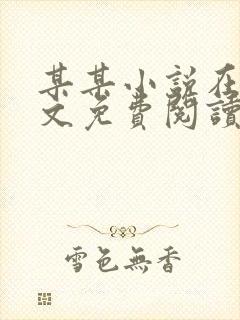 某某小说在
文免費閱讀
雪色無香